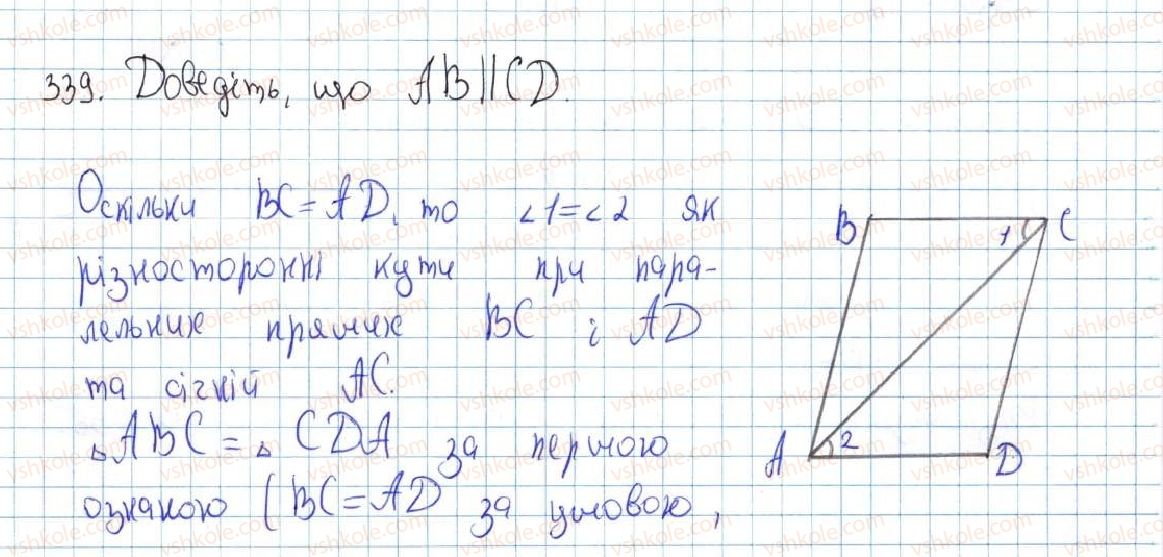 339. Доведіть, що AB||CD.
Оскільки BC = AD, то ∠1 = ∠2 як
різносторонні кути при пара-
лельних прямих BC і AD
та січній AC.
△ABC = △CDA за першою
ознакою (BC = AD за умовою,
B
C
1
A
2
D
vshkole.com